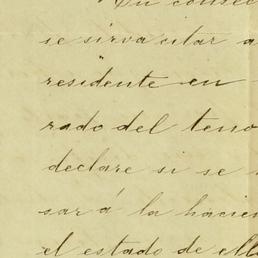 En consec
se sirva citar a
residente en
rado del teno
declare si se
sar á la hacien
el estado de ell